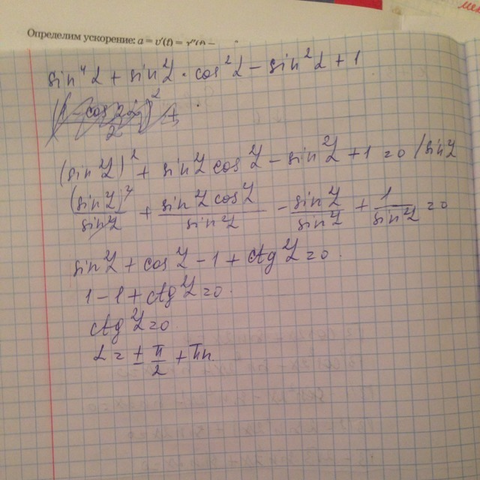 Определим ускорение: a = v'(t) =
sin⁴α + sin²α · cos²α − sin²α + 1
(sin²α)² + sin²α cos²α − sin²α + 1 = 0 / sin²α
(sin²α)²/sin²α + sin²α cos²α/sin²α − sin²α/sin²α + 1/sin²α = 0
sin²α + cos²α − 1 + ctg²α = 0
1 − 1 + ctg²α = 0.
ctg²α = 0
α = ± π/2 + πn